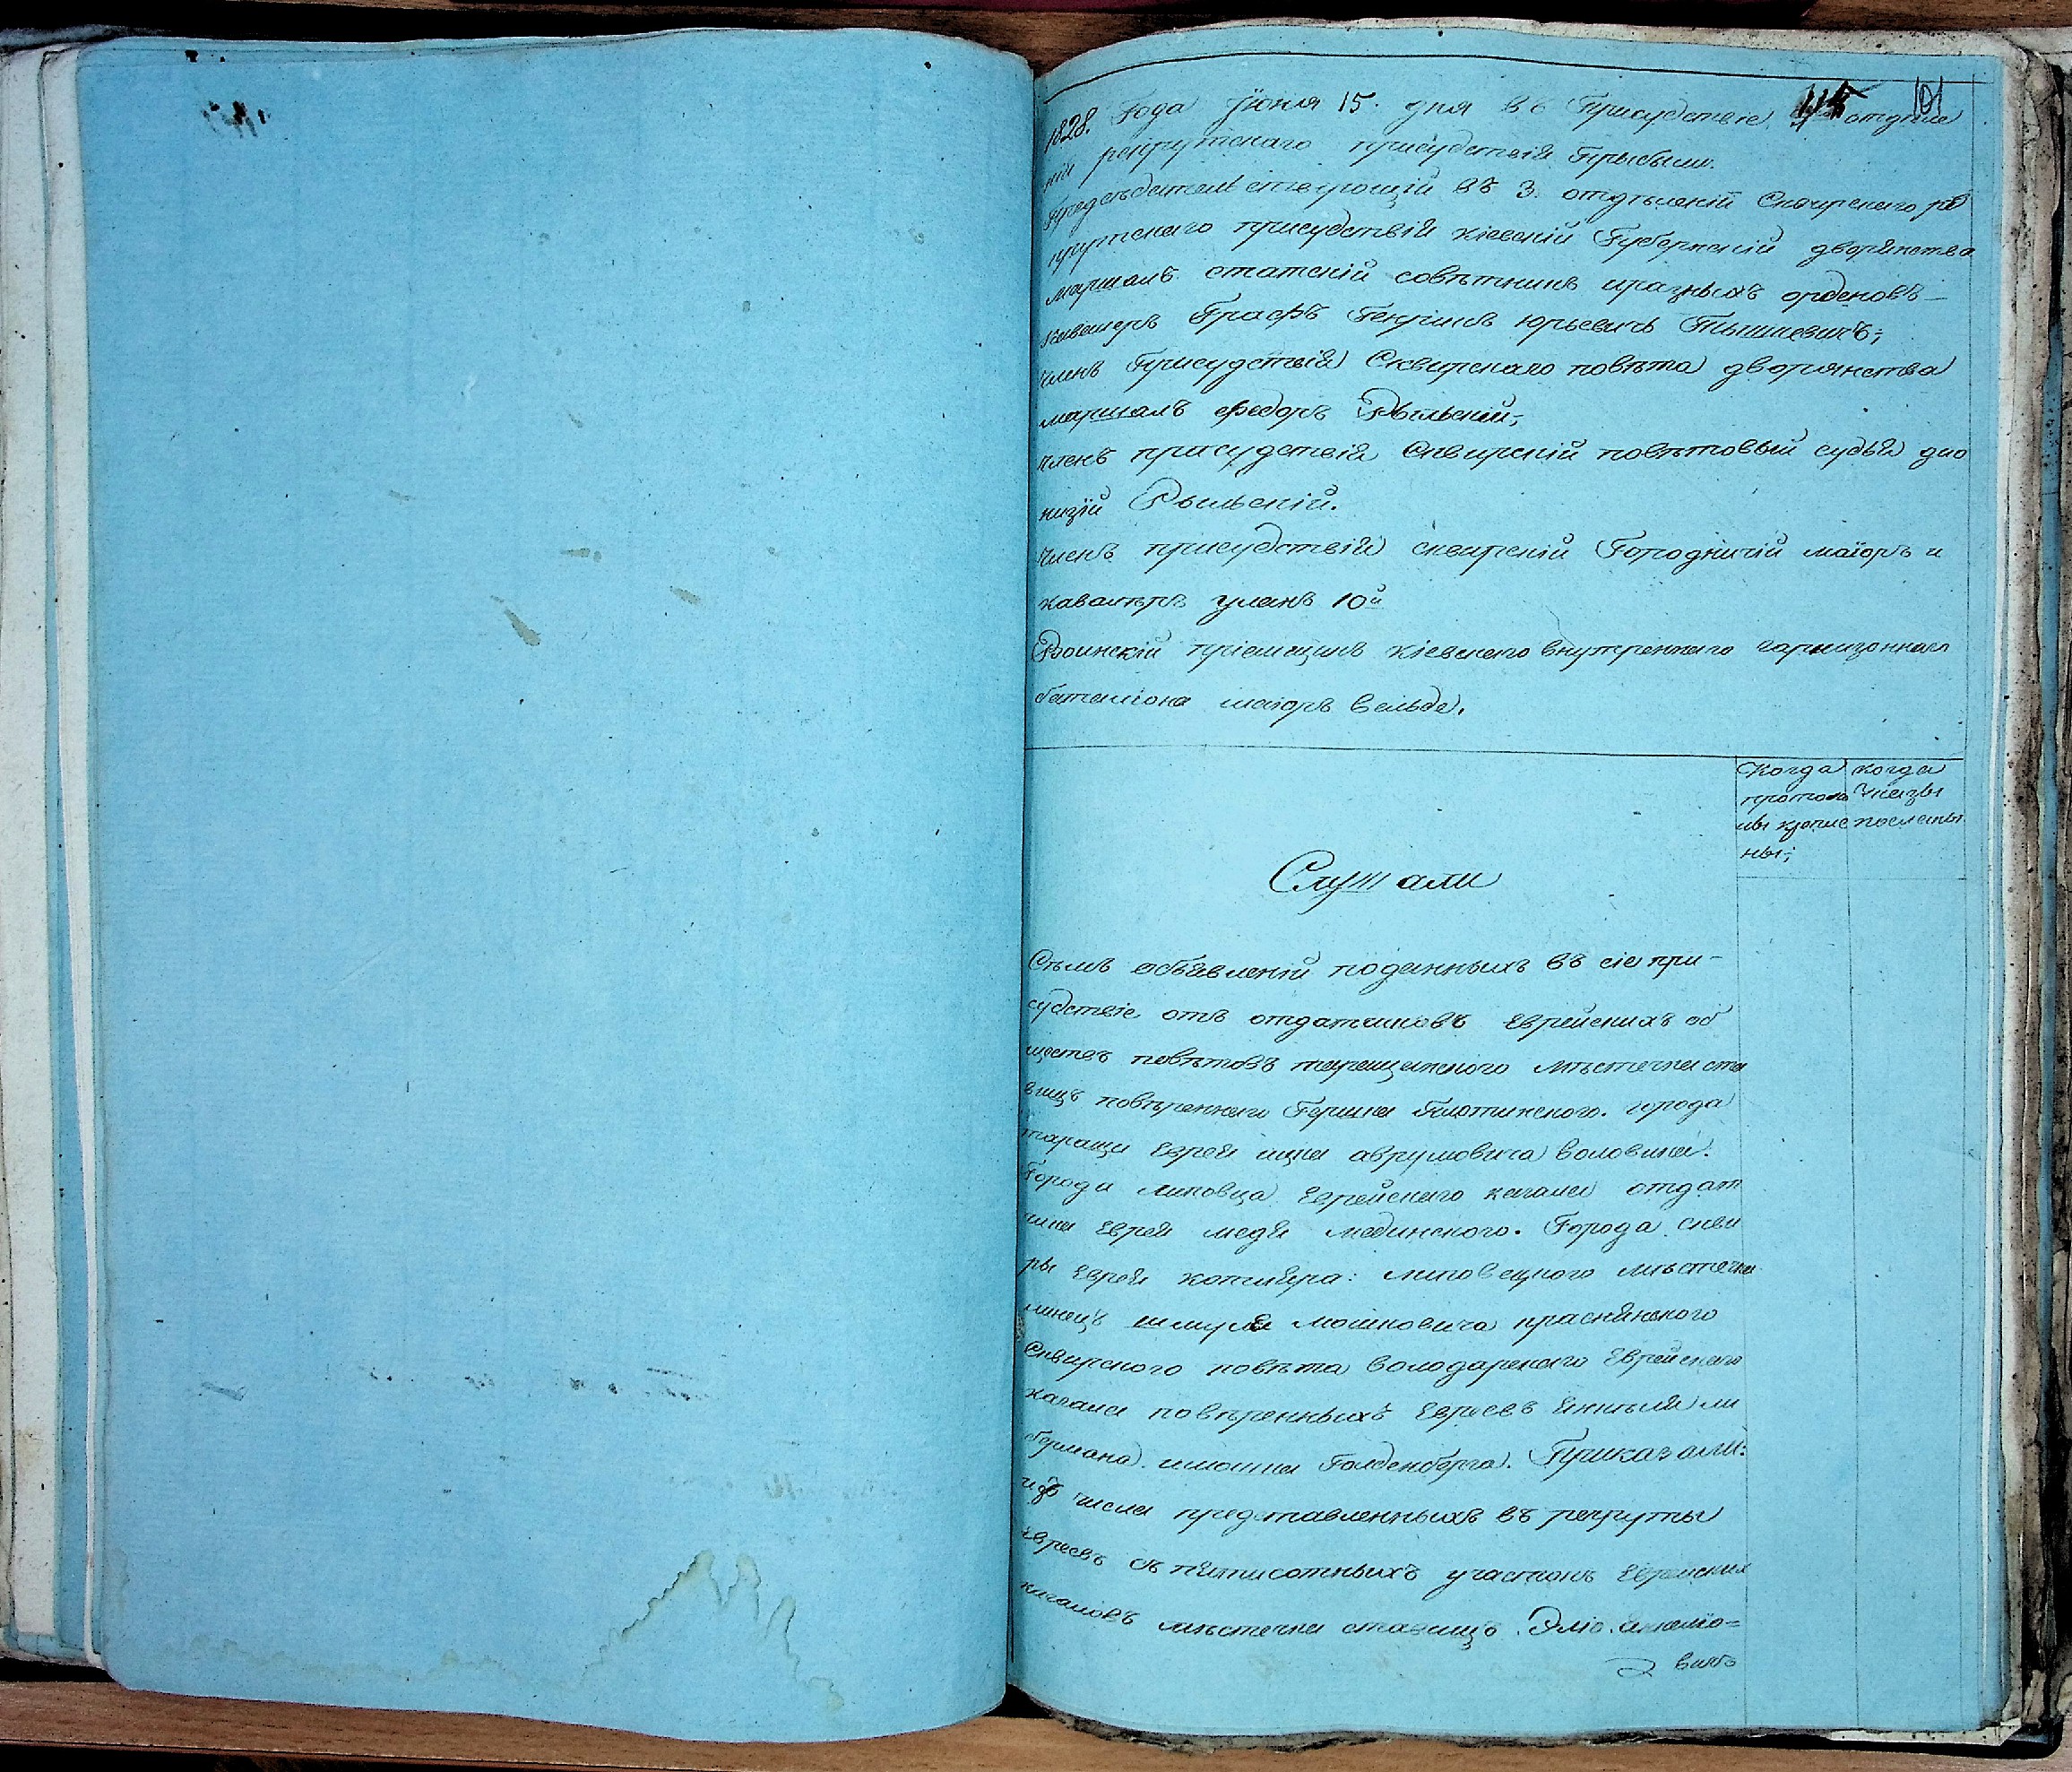 115 101
1828. Года Іюня 15. дня Въ Присудствіе отдѣле
нія рекрутскаго присудствія Прибыли.
Предсѣдательствующій въ 3. отдѣленіи Сквирскаго ре
крутскаго присудствія кіевскій Губернскій дворянства
маршалъ статскій совѣтникъ иразныхъ орденовъ
Кавалеръ Графъ Генрихъ Юрьевичъ Тышкевичъ;
Членъ Присудствія Сквирскаго повѣта дворянства
маршалъ Федоръ Рыльскій;
Членъ присудствія Сквирскій повѣтовый судья дио
низій Рыльскій.
Членъ присудствія сквирскій Городничій маіоръ и
кавалеръ уланъ 10й
Воинскій пріемщикъ кіевскаго внутренняго гарнизоннаго
баталіона маіоръ вельде.
Когда протоко лы крѣпле ны;
когда Указы посланы.
Слушали
Сѣмъ объявленій поданныхъ въ сіе при-
судствіе отъ отдатчиковъ Еврейскихъ об
ществъ повѣтовъ таращанского мѣстечка ста
вищъ повѣреннаго Герша Плотинского. города
таращи Еврея ицка аврумовича воловика.
Города липовца Еврейскаго кагала отдат
чика Еврея медя мединского. Города скви
ры Еврея котляра: липовецкого мѣстечка
линецъ шмуля мошковича краснянского
Сквирского повѣта володарскаго Еврейскаго
кагала повѣренныхъ Евреевъ янкеля ли
бермана имошка Голденберга. Приказали:
изъ числа представленныхъ въ рекруты
евреевъ съ пятисотныхъ участковъ Еврейскихъ
кагаловъ мѣстечка ставищъ Элю янкелїо=
вичъ